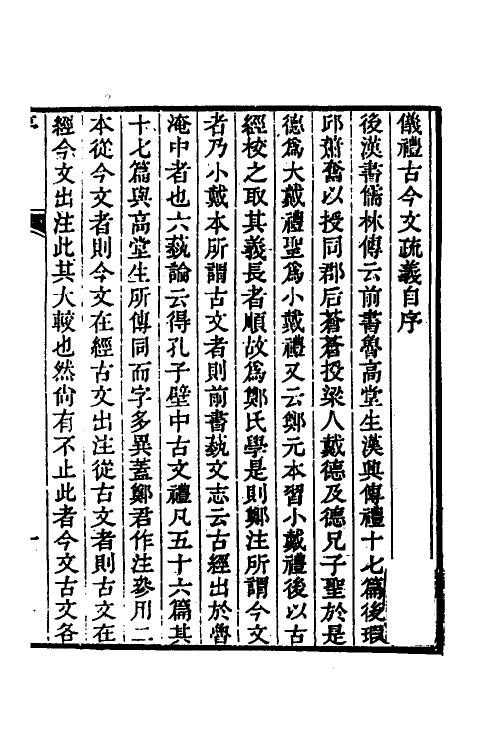 儀禮古今文疏義自序
後漢書儒林傳云前書魯高堂生漢興傳禮十七篇後瑕
邱蕭奮以授同郡后蒼蒼授梁人戴德及德兄子聖於是
德爲大戴禮聖爲小戴禮又云鄭元本習小戴禮後以古
經校之取其義長者順故爲鄭氏學是則鄭注所謂今文
者乃小戴本所謂古文者則前書藝文志云古經出於魯
淹中者也六藝論云得孔子壁中古文禮凡五十六篇其
十七篇與高堂生所傳同而字多異蓋鄭君作注參用二
本從今文者則今文在經古文出注從古文者則古文在
經今文出注此其大較也然尙有不止此者今文古文各
一